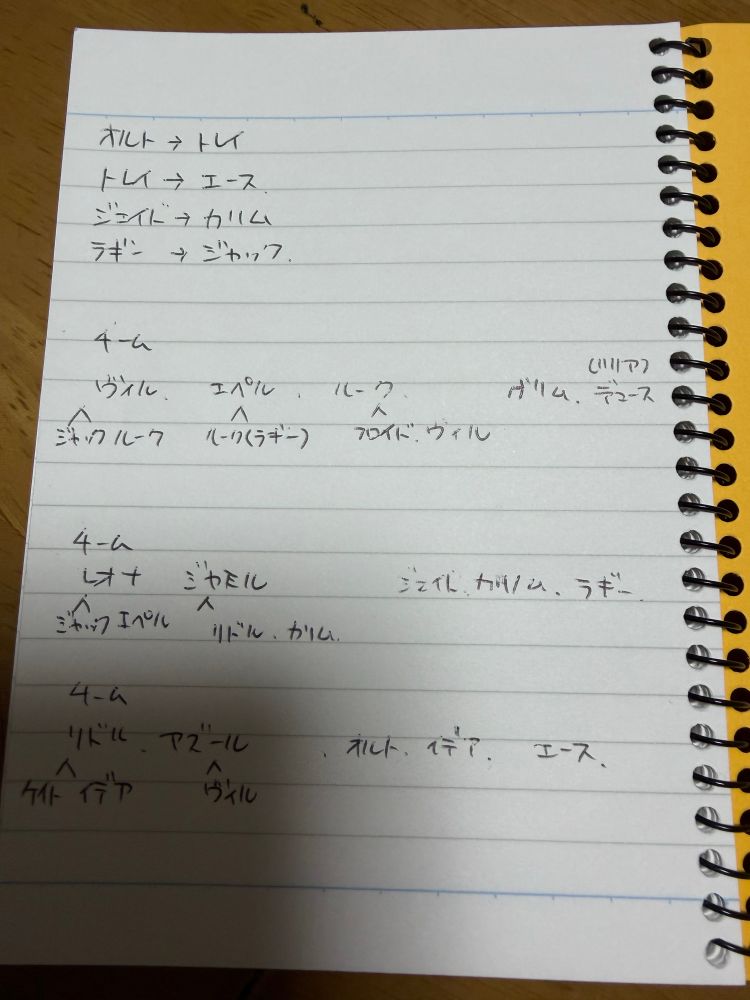 オルト → トレイ
トレイ → エース.
ジェイド → カリム
ラギー → ジャック.
チーム
(リリア)
ヴィル. エペル. ルーク. グリム. デュース
ジャック ルーク ルーク(ラギー) フロイド. ヴィル
チーム
レオナ ジャミル ジェイド. カリム. ラギー.
ジャック エペル リドル. カリム.
チーム
リドル. アズール . オルト. イデア. エース.
ケイト イデア ヴィル